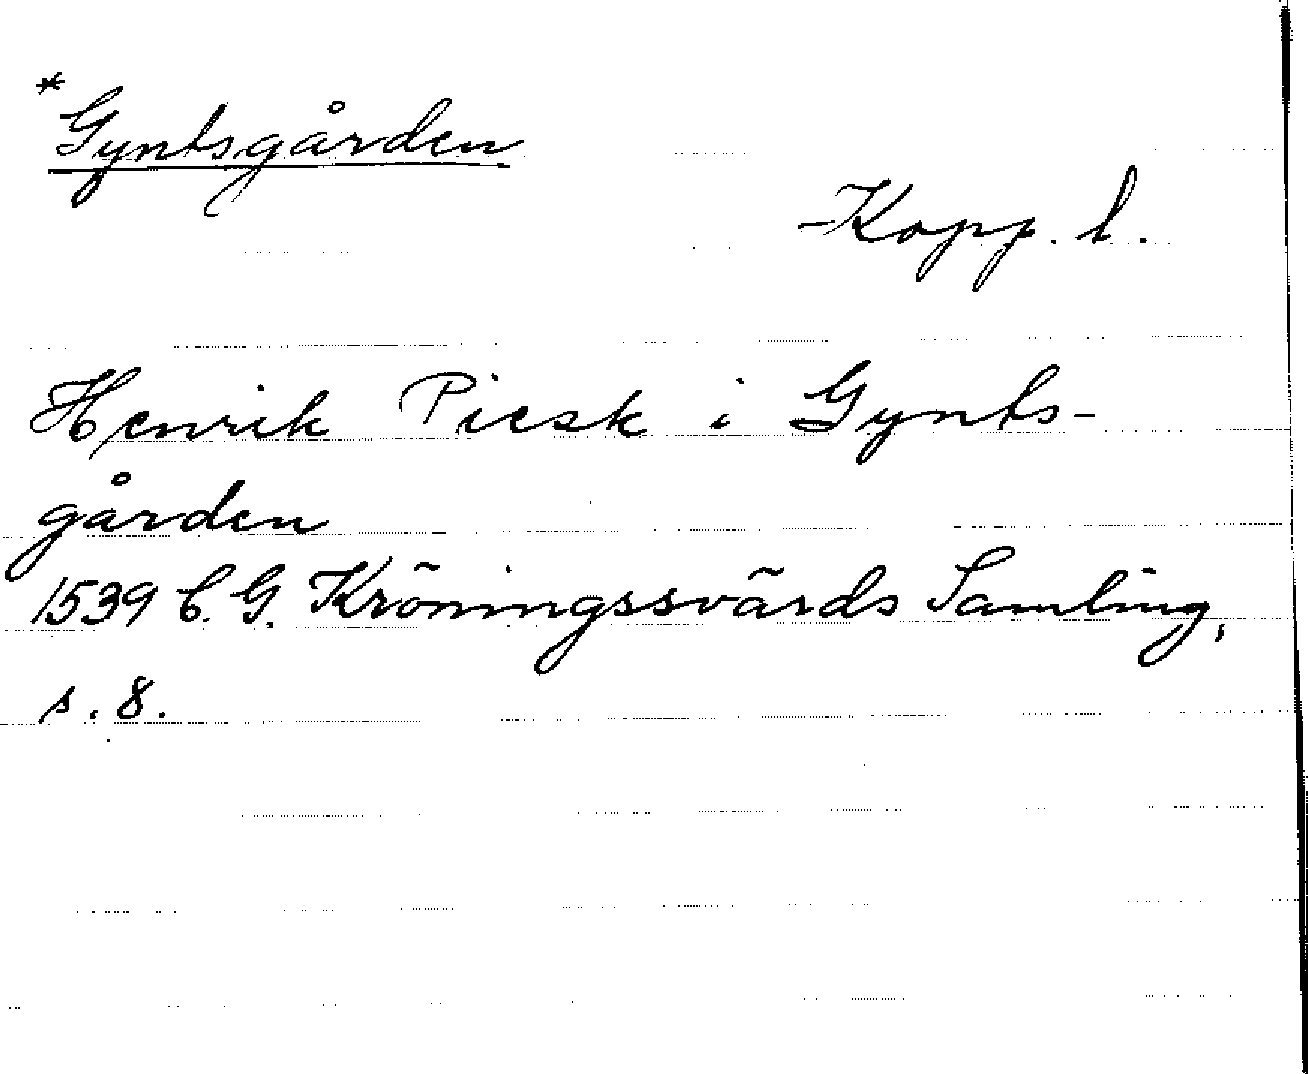 *Gyntsgården
Kopp. l.
Henrik Piesk i Gynts-
gården
1539 C. G. Kröningssvärds Samling,
s. 8.